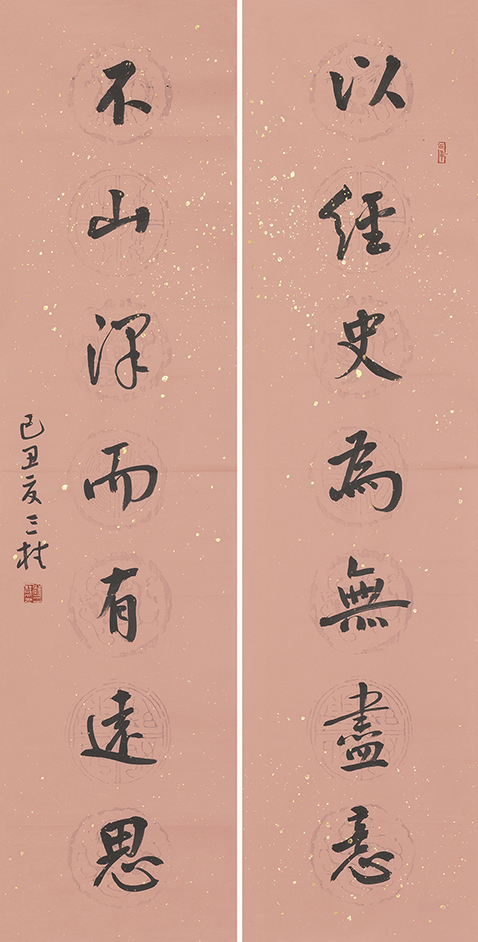 以經史為無盡意
不山澤而有遠思
己丑夏三村